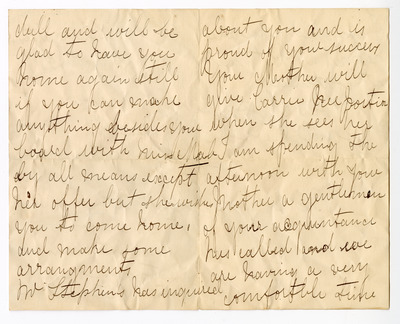 dull and will be
glad to have you
home again still
if you can make
anything besides your
board with
by all means except
her offer but she wishes
you to come home,
and make some
arrangments.
Mr Stephens has inquired
about you and is
proud of your success
Your Mother will
give Carrie her portion
when she sees her
I am spending the
afternoon with your
Mother a gentlemen
of your acquintance
has called and we
are having a very
comfortble time